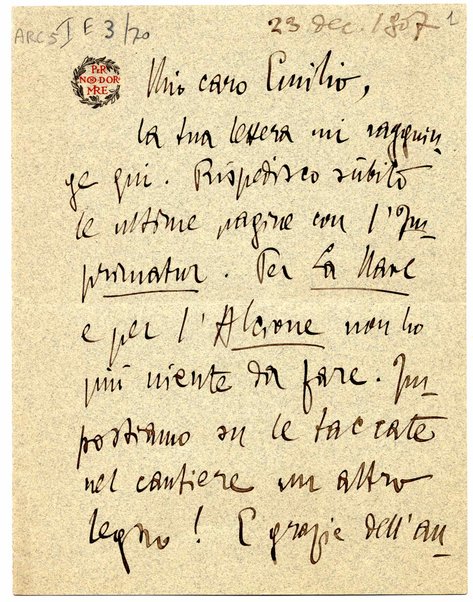 ARC 5 I E 3/70
23 dec. 1907 1
PER
NO DOR
MIRE
Mio caro Emilio,
la tua lettera mi raggiun
ge qui. Rispedisco sùbito
le ultime pagine con l'Im
primatur. Per La Nave
e per l'Alcione non ho
più niente da fare. Im
postiamo su le taccate
nel cantiere un altro
legno! E grazie dell'au